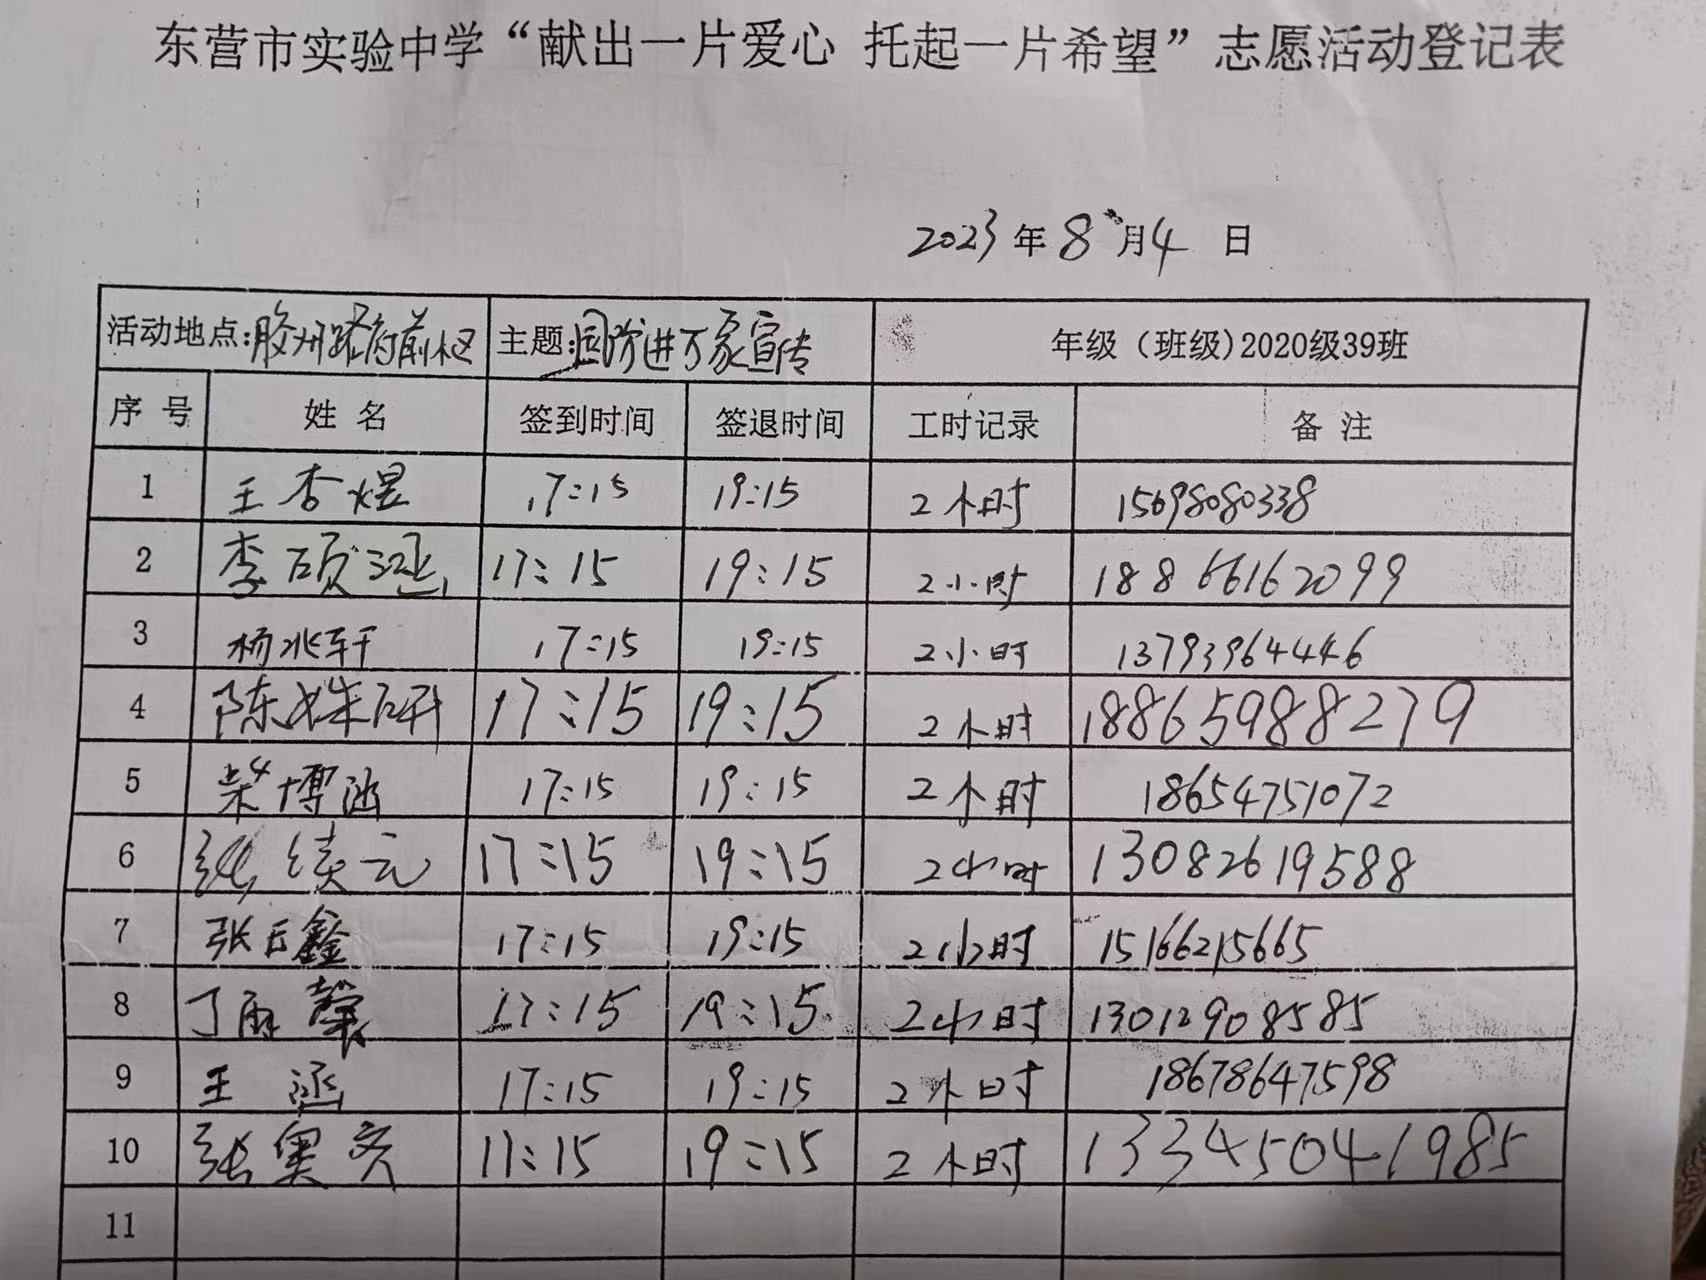 东营市实验中学“献出一片爱心 托起一片希望”志愿活动登记表
2023年8月4日
活动地点:胶州路府前社区 主题:国防进万家宣传 年级（班级)2020级39班
序号 姓名 签到时间 签退时间 工时记录 备注
1 王杏煜 17:15 19:15 2小时 15698080338
2 李硕涵 17:15 19:15 2小时 18866162099
3 杨兆轩 17:15 19:15 2小时 13793964446
4 陈姝研 17:15 19:15 2小时 18865988279
5 柴博涵 17:15 19:15 2小时 18654751072
6 张续元 17:15 19:15 2小时 13082619588
7 张云鑫 17:15 19:15 2小时 15166215665
8 丁雨馨 17:15 19:15 2小时 13012908585
9 王涵 17:15 19:15 2小时 18678647598
10 张奥 17:15 19:15 2小时 13345041985
11